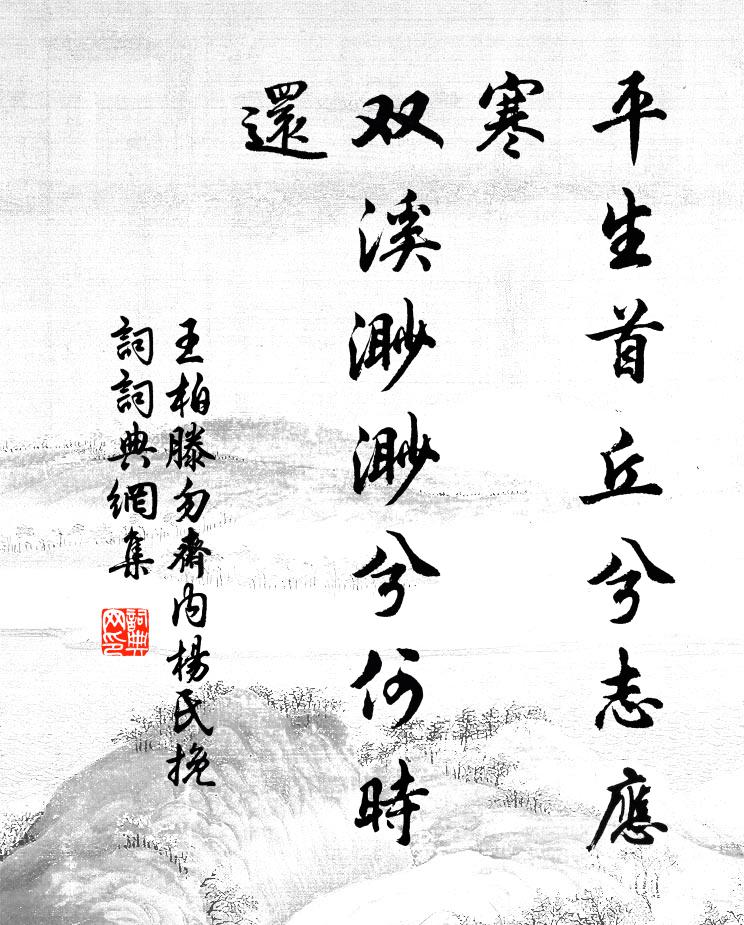 平生首丘兮志應
寒
双溪渺渺兮何時
還
王柏滕勿齋內楊氏挽
詞詞典網集
詞典
网印